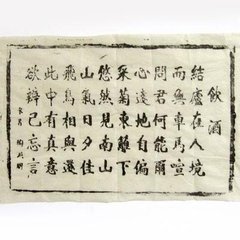 飲酒
結廬在人境
而無車馬喧
問君何能爾
心遠地自偏
采菊東籬下
悠然見南山
山氣日夕佳
飛鳥相與還
此中有真意
欲辯已忘言